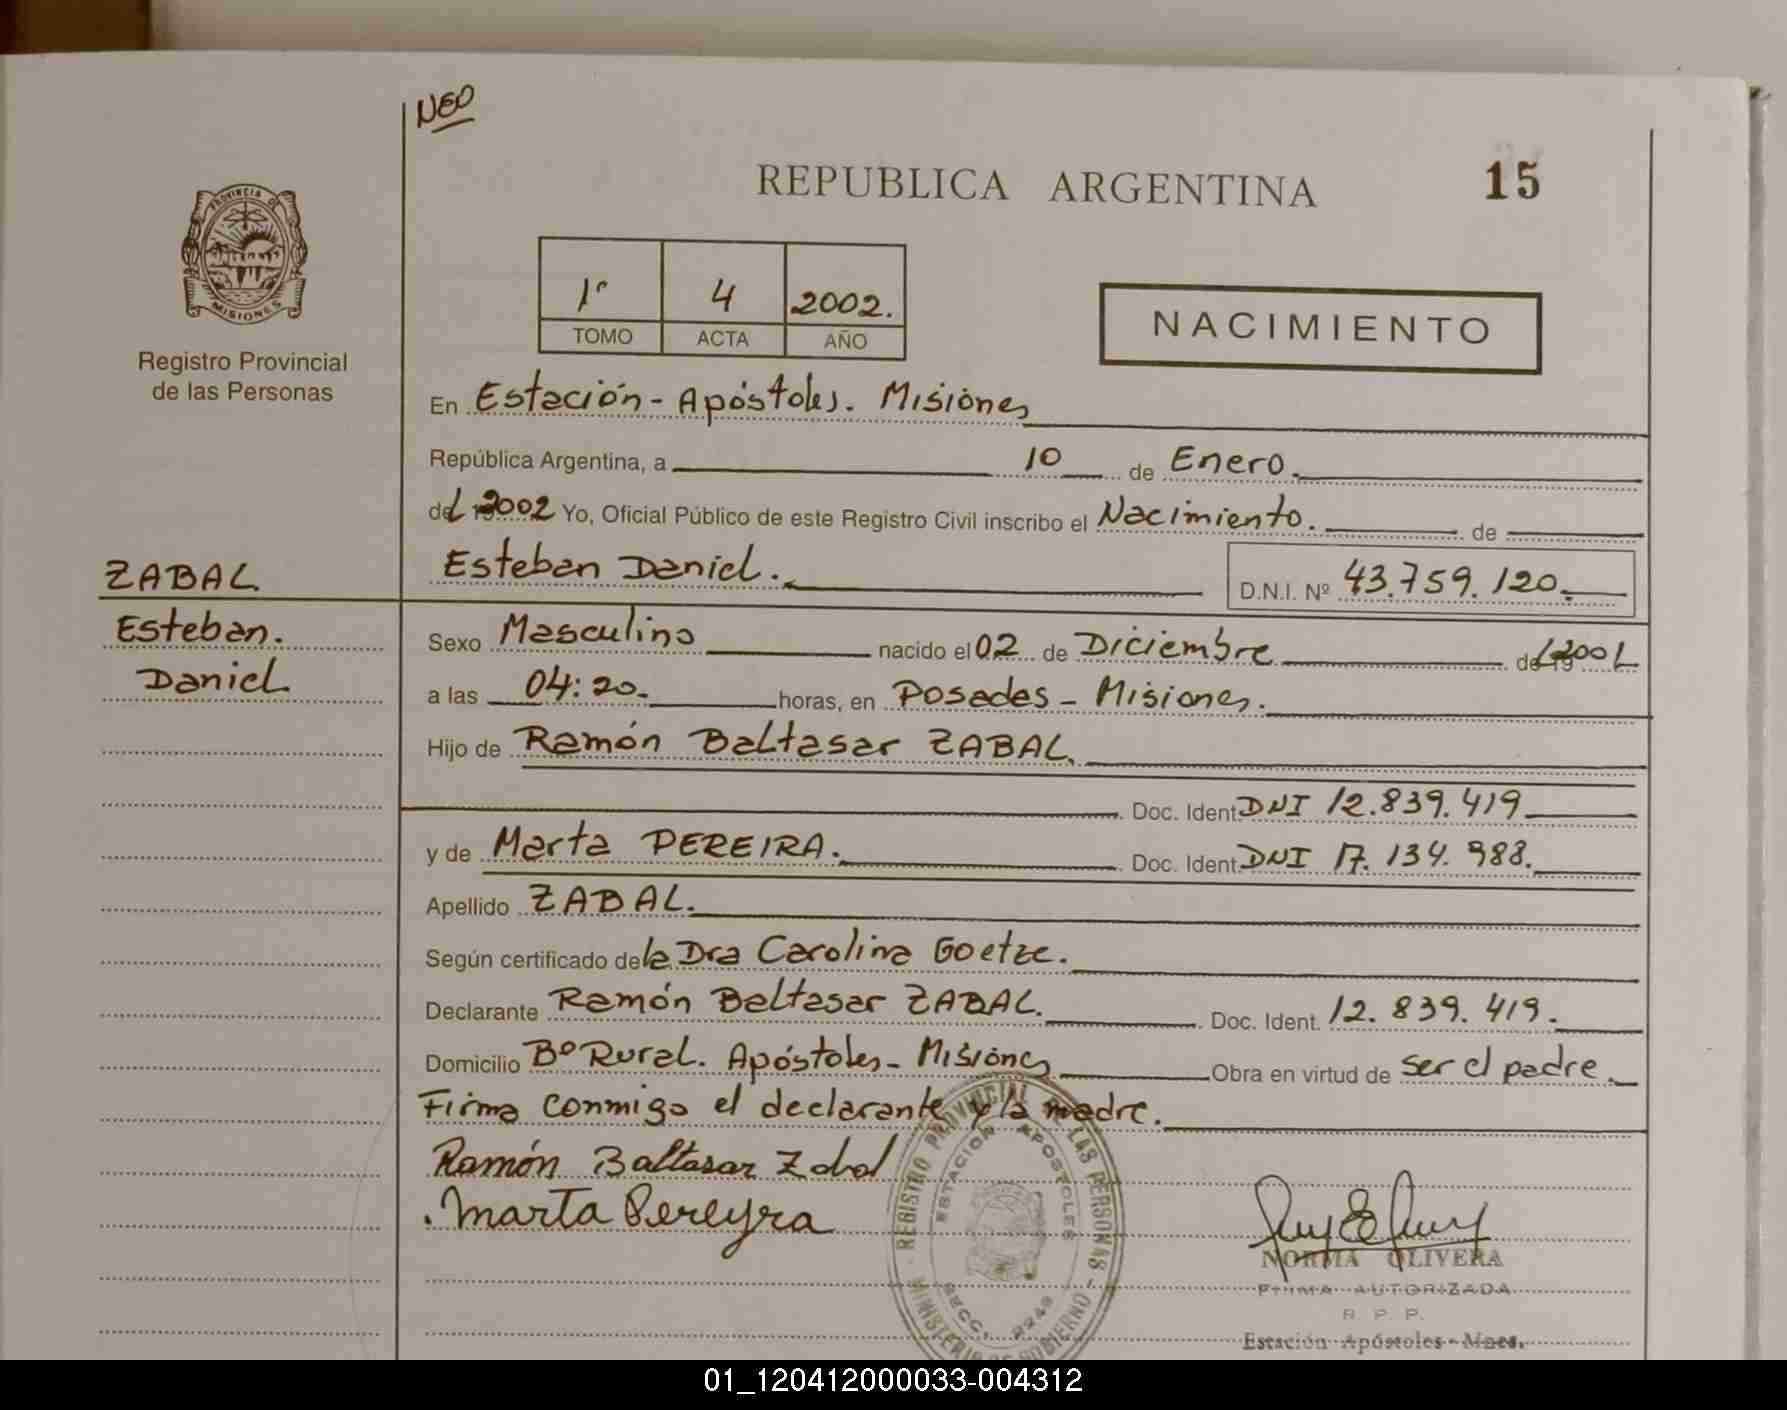 NEO
REPUBLICA ARGENTINA
15
PROVINCIA D
MISIONES
Registro Provincial
de las Personas
1º 4 2002.
TOMO ACTA AÑO
NACIMIENTO
En Estación - Apóstoles. Misiones
República Argentina, a 10 de Enero.
del 2002 Yo, Oficial Público de este Registro Civil inscribo el Nacimiento. de
Esteban Daniel. D.N.I. Nº 43.759.120.
ZABAL
Esteban.
Daniel
Sexo Masculino nacido el 02 de Diciembre del 2001
a las 04:20. horas, en Posadas - Misiones.
Hijo de Ramón Baltasar ZABAL.
Doc. Ident. DNI 12.839.419
y de Marta PEREIRA. Doc. Ident. DNI 17.134.988.
Apellido ZABAL.
Según certificado de la Dra Carolina Goetze.
Declarante Ramón Baltasar ZABAL. Doc. Ident. 12.839.419.
Domicilio Bº Rural. Apóstoles - Misiones Obra en virtud de ser el padre.
Firma conmigo el declarante y la madre.
Ramón Baltasar Zabal
Marta Pereyra
REGISTRO PROVINCIAL DE LAS PERSONAS
ESTACION APOSTOLES
SECC.
MINISTERIO DE GOBIERNO
NORMA OLIVERA
FIRMA AUTORIZADA
R. P. P.
Estación Apóstoles - Mnes.
01_120412000033-004312